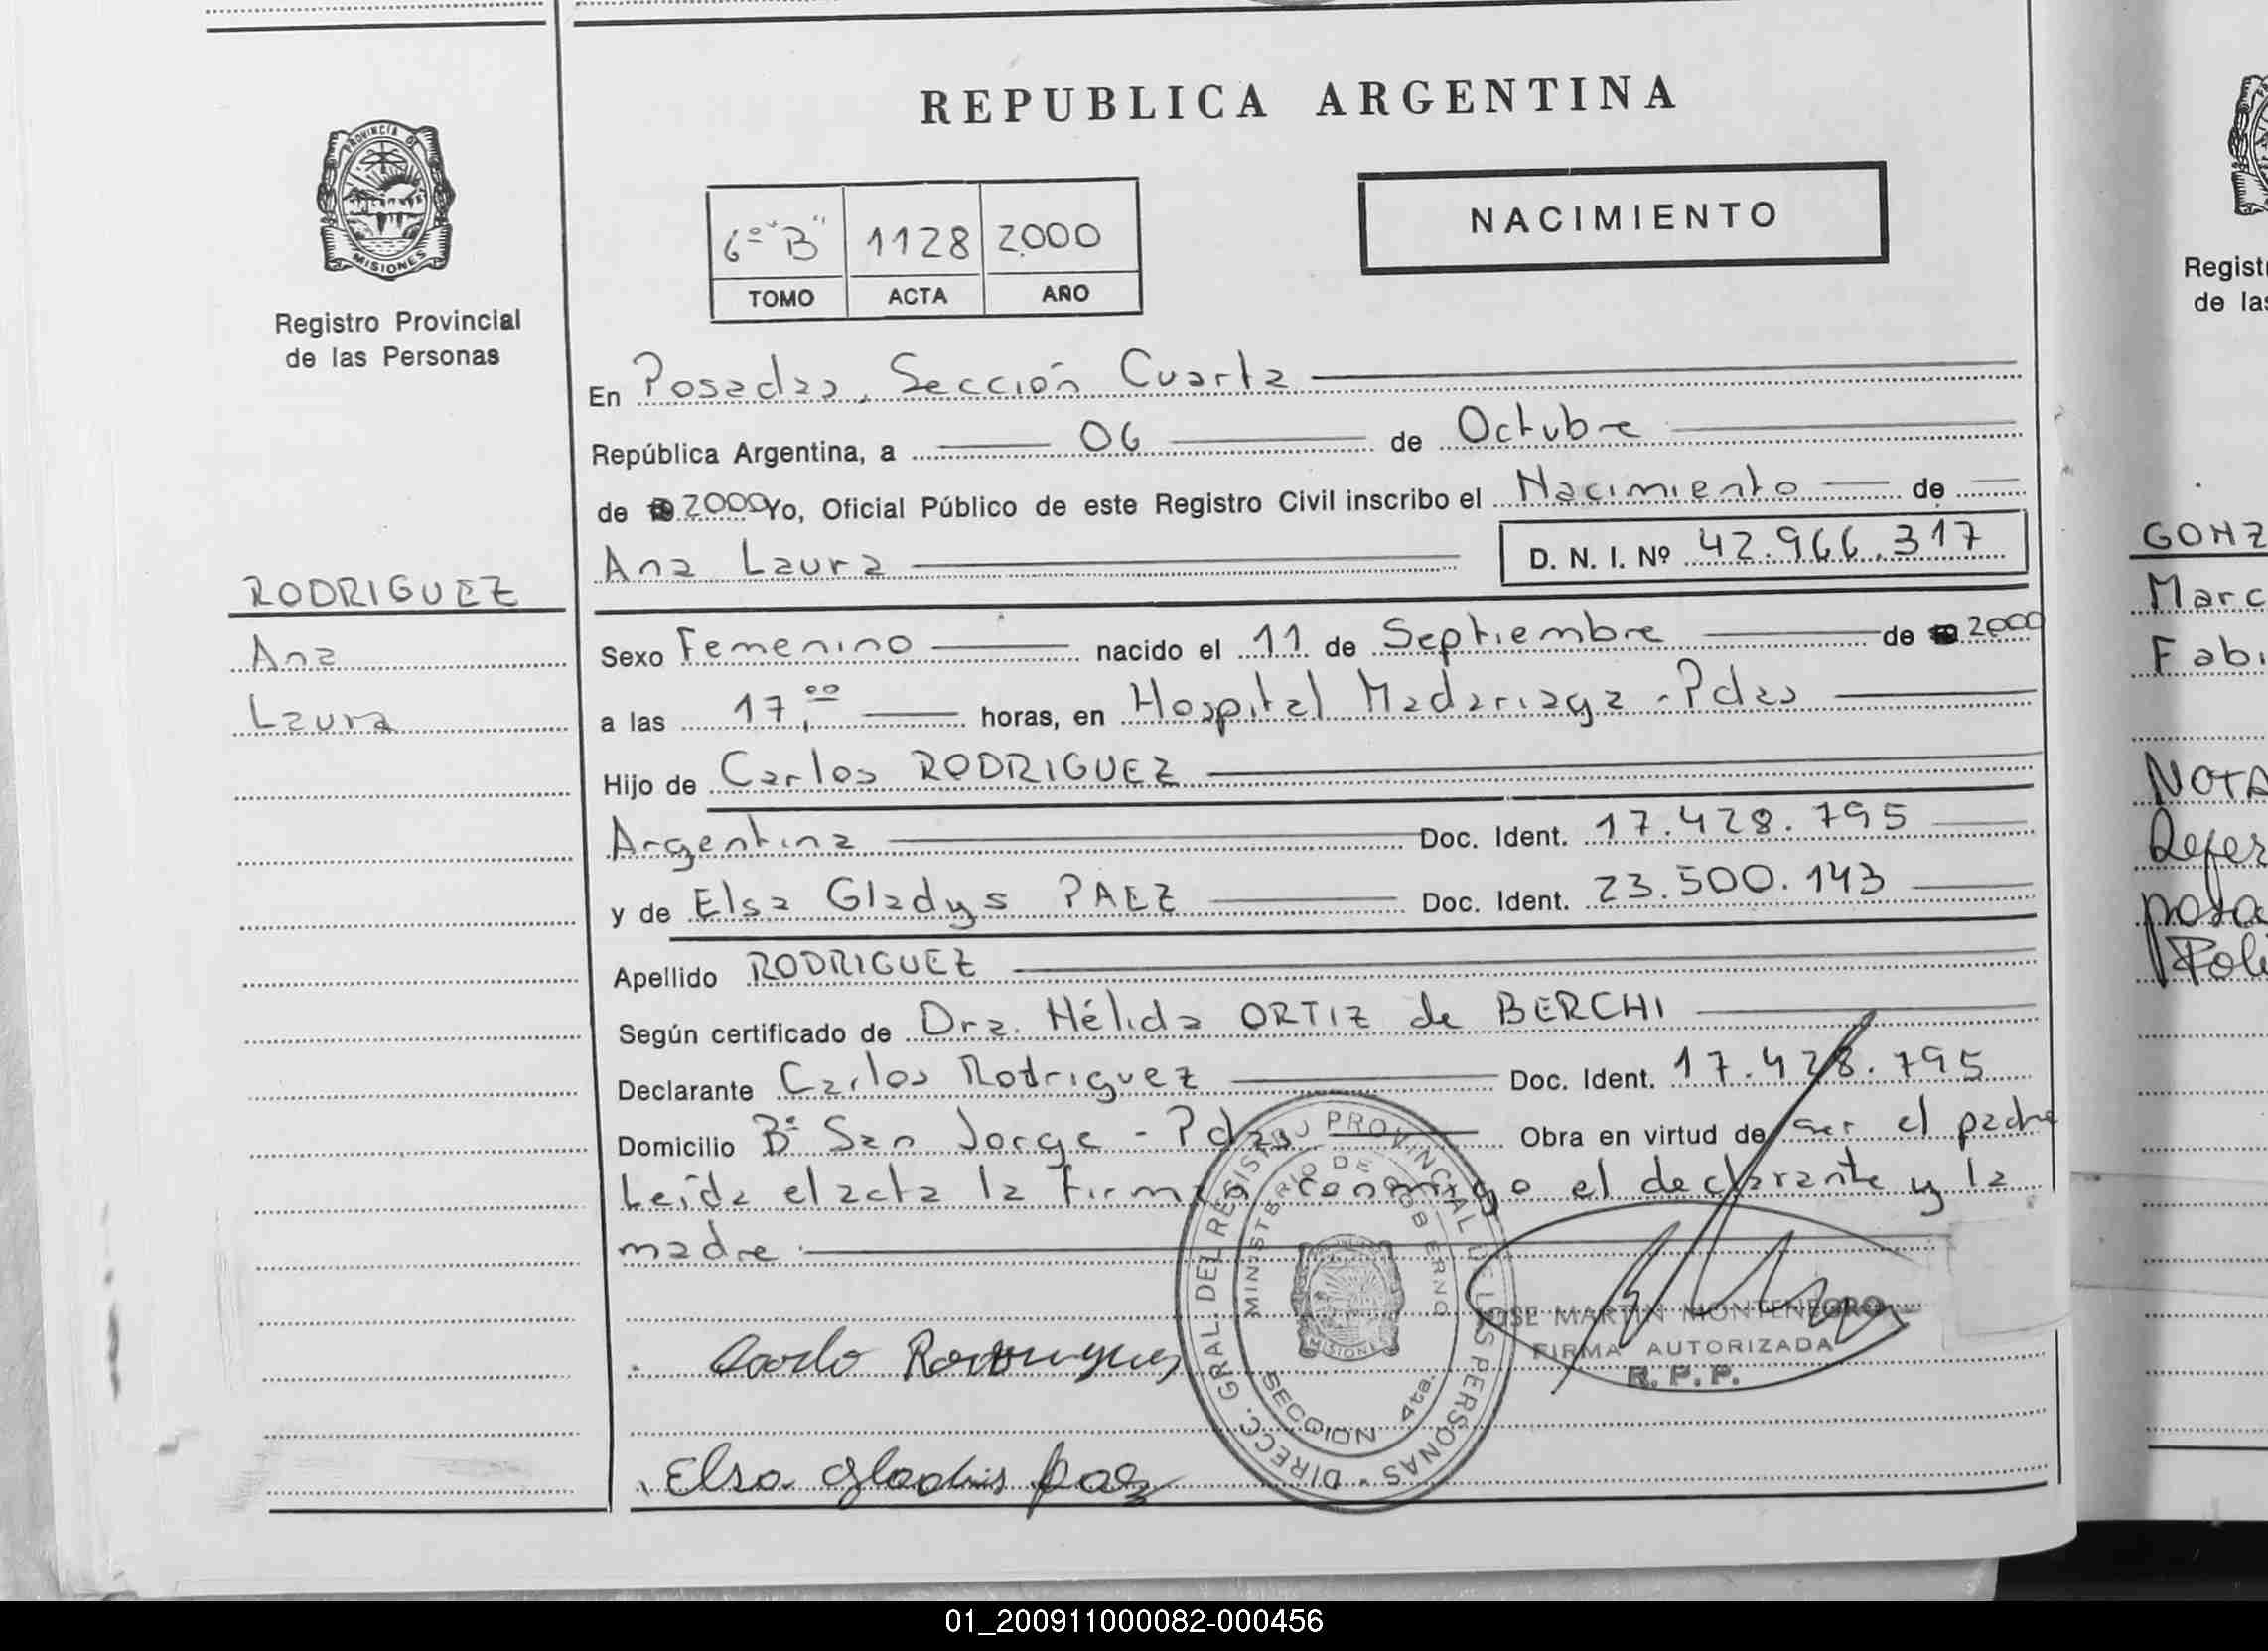 REPUBLICA ARGENTINA
PROVINCIA DE MISIONES
Registro Provincial
de las Personas
6º "B" 1128 2.000
TOMO ACTA AÑO
NACIMIENTO
En Posadas, Sección Cuarta
República Argentina, a 06 de Octubre
de 2000 Yo, Oficial Público de este Registro Civil inscribo el Nacimiento de
Ana Laura D. N. I. Nº 42.966.317
RODRIGUEZ
Ana
Laura
Sexo Femenino nacido el 11 de Septiembre de 2000
a las 17,00 horas, en Hospital Madariaga - Pdas
Hijo de Carlos RODRIGUEZ
Argentina Doc. Ident. 17.428.795
y de Elsa Gladys PAEZ Doc. Ident. 23.500.143
Apellido RODRIGUEZ
Según certificado de Dra. Hélida ORTIZ de BERCHI
Declarante Carlos Rodriguez Doc. Ident. 17.428.795
Domicilio Bº San Jorge - Pdas Obra en virtud de ser el padre
Leída el acta la firman conmigo el declarante y la
madre.
DIRECC. GRAL. DEL REGISTRO PROVINCIAL DE LAS PERSONAS
MINISTERIO DE GOBIERNO
MISIONES
SECCION 4ta.
JOSE MARTIN MONTENEGRO
FIRMA AUTORIZADA
R. P. P.
Carlo Rodrigues
Elsa Gladis Paez
Regist
de las
GONZ
Marc
Fabi
NOTA
Refer
nota
Poli
01_200911000082-000456